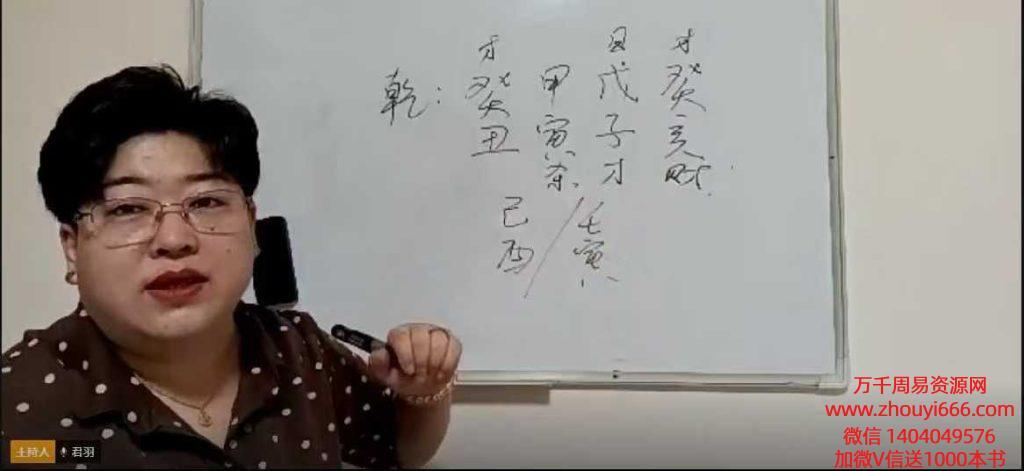 才 日 才
乾: 癸 甲 戊 癸
丑 寅 子 亥
杀 才 财
己 / 壬
酉 寅
主持人 君羽
万千周易资源网
www.zhouyi666.com
微信 1404049576
加微V信送1000本书